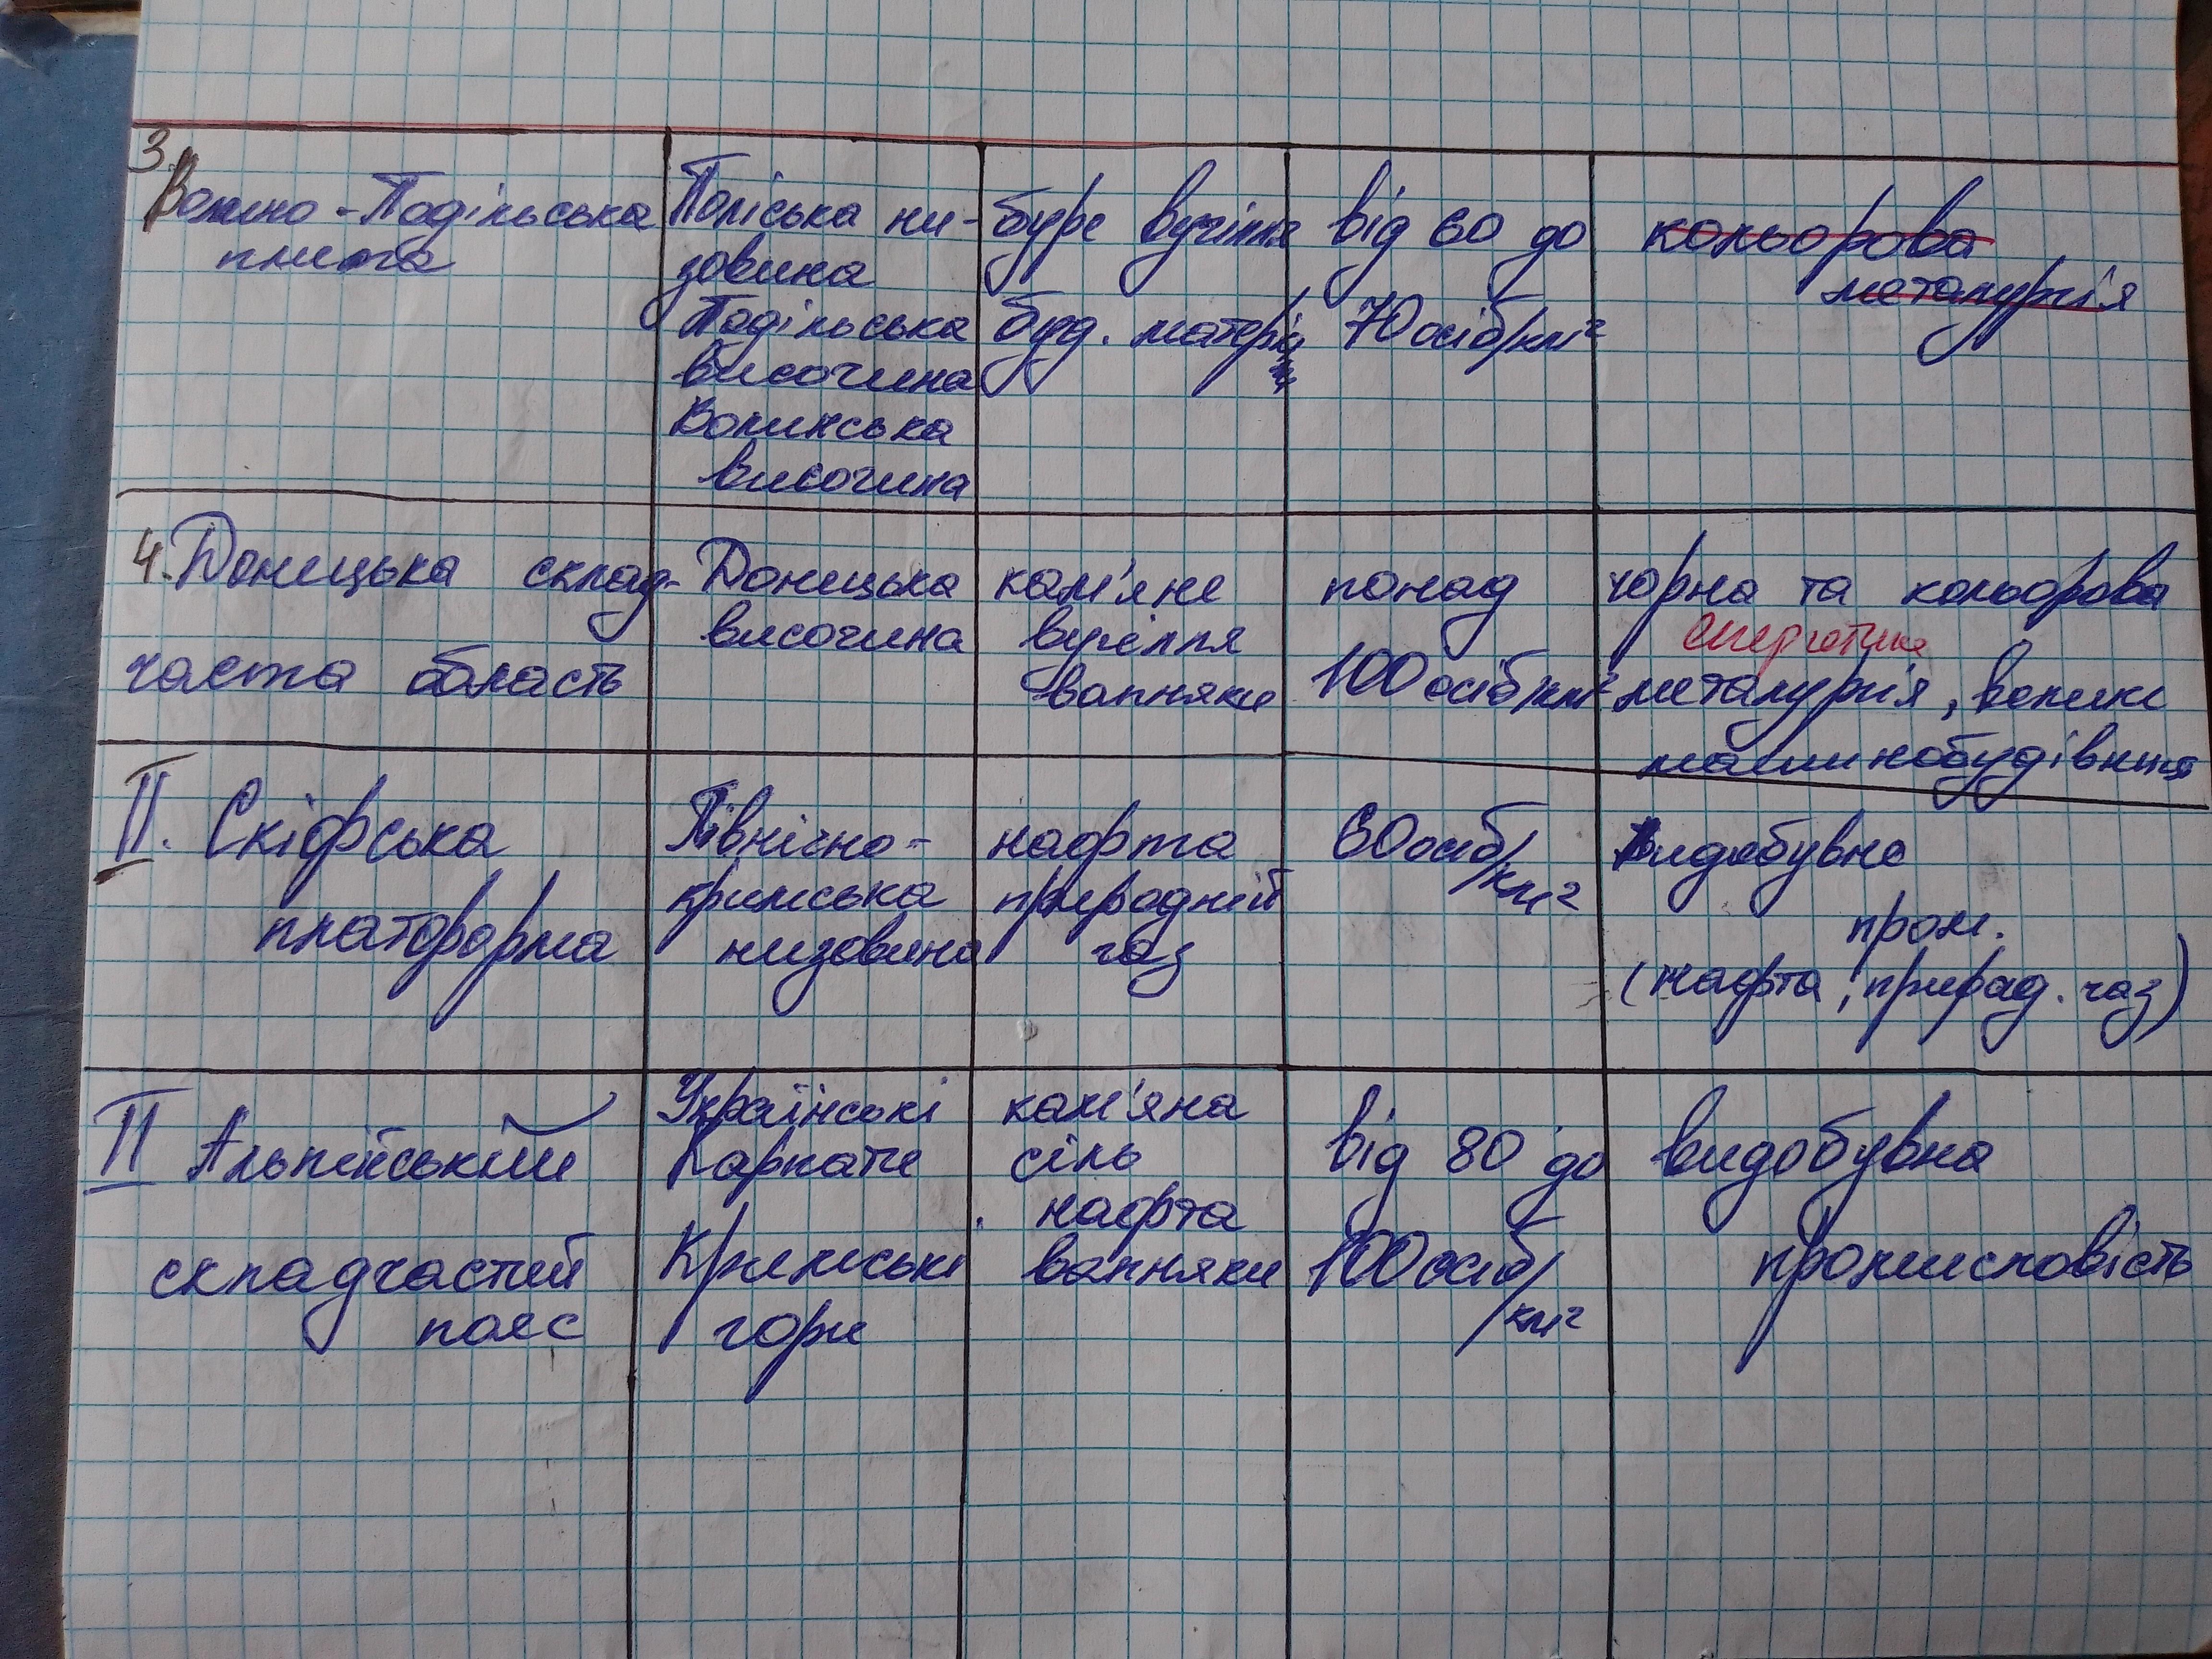 3.
Волино-Подільська
плита
Поліська ни-
зовина
Подільська
височина
Волинська
височина
буре вугілля
буд. матері
від 60 до
70 осіб/км²
кольорова
металургія
4. Донецька склад-
часта область
Донецька
височина
кам'яне
вугілля
вапняки
понад
100 осіб/км²
чорна та кольорова
енергетика
металургія, велике
машинобудівння
II. Скіфська
платформа
Північно-
кримська
низовина
нафта
природній
газ
60 осіб/км²
Видобувна
пром.
(нафта, природ. газ)
II Альпійський
складчастий
пояс
Українські
Карпати
Кримські
гори
кам'яна
сіль
нафта
вапняки
від 80 до
100 осіб/
км²
видобувна
промисловість